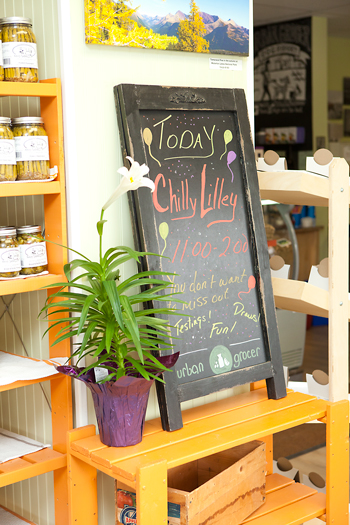 TODAY
Chilly Lilley
11:00-2:00
You don't want
to miss out.
Tastings! Draws!
Fun!
urban grocer